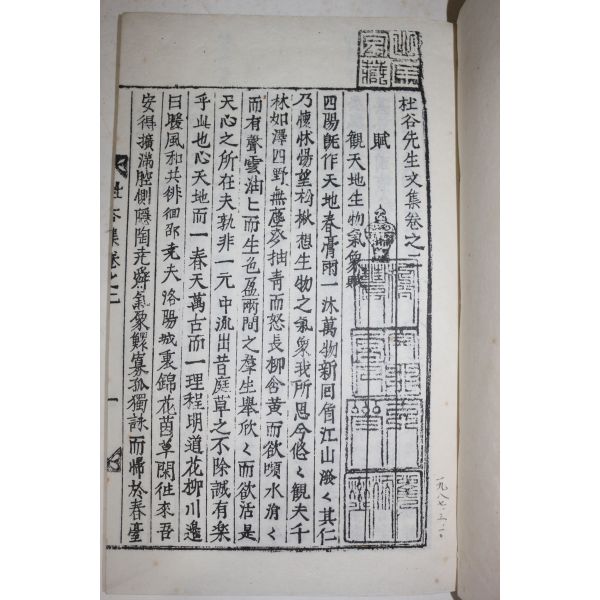 杜谷先生文集卷之二
賦
觀天地生物氣象賦
四陽旣作天地春膏雨一沐萬物新囘首江山潑〻其仁
乃懷怵惕望松楸想生物之氣象我所思兮悠〻觀夫千
林如澤四野無塵麥抽青而怒長柳含黃而欲嚬水㵧〻
而有聲雲油〻而生色盈兩間之羣生擧欣〻而欲活是
天心之所在夫孰非一元中流出昔庭草之不除誠有樂
乎此也心天地而一春天萬古而一理程明道花柳川邊
日暖風和共徘徊邵堯夫洛陽城裏錦花茵草閑徃來吾
安得擴滿腔惻隱陶堯舜氣象鰥寡孤獨詠而歸於春臺
杜谷集卷之二
一
一九八七.三.一〇